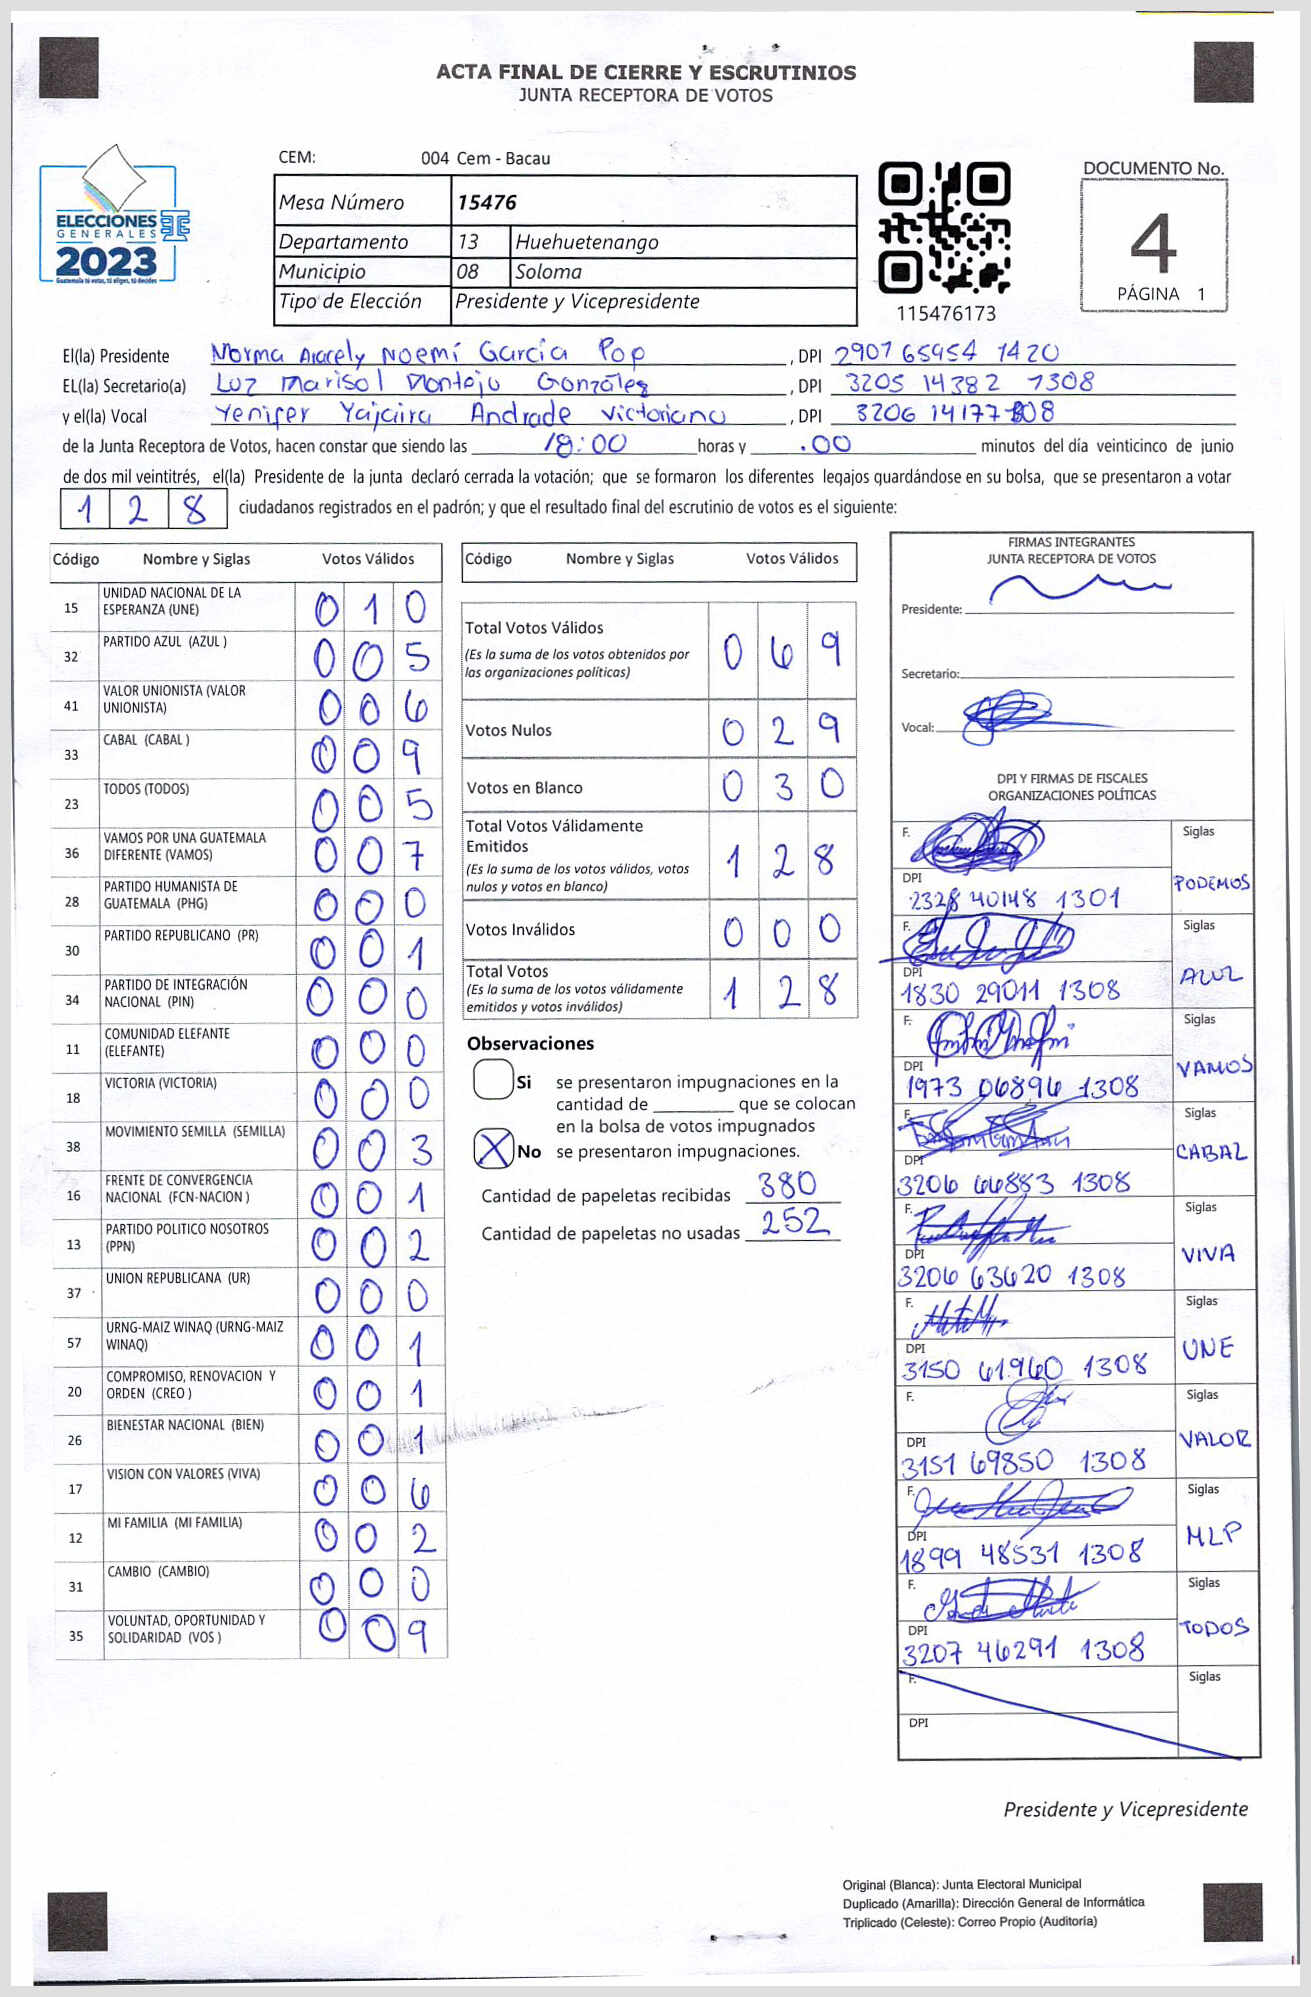 ACTA FINAL DE CIERRE Y ESCRUTINIOS
JUNTA RECEPTORA DE VOTOS
CEM: 004 Cem - Bacau
ELECCIONES
GENERALES
2023
Mesa Número 15476
Departamento 13 Huehuetenango
Municipio 08 Soloma
Tipo de Elección Presidente y Vicepresidente
115476173
DOCUMENTO No.
4
PÁGINA 1
El(la) Presidente Norma Aracely Noemí García Pop , DPI 2907 65954 1420
EL(la) Secretario(a) Luz Marisol Montejo Gonzáles , DPI 3205 14382 1308
y el(la) Vocal Yenifer Yajaira Andrade Victoriano , DPI 3206 14177
de la Junta Receptora de Votos, hacen constar que siendo las 18:00 horas y .00 minutos del día veinticinco de junio
de dos mil veintitrés, el(la) Presidente de la junta declaró cerrada la votación; que se formaron los diferentes legajos guardándose en su bolsa, que se presentaron a votar
1 2 8 ciudadanos registrados en el padrón; y que el resultado final del escrutinio de votos es el siguiente:
Código Nombre y Siglas Votos Válidos
15 UNIDAD NACIONAL DE LA ESPERANZA (UNE) 0 1 0
32 PARTIDO AZUL (AZUL ) 0 0 5
41 VALOR UNIONISTA (VALOR UNIONISTA) 0 0 6
33 CABAL (CABAL ) 0 0 9
23 TODOS (TODOS) 0 0 5
36 VAMOS POR UNA GUATEMALA DIFERENTE (VAMOS) 0 0 7
28 PARTIDO HUMANISTA DE GUATEMALA (PHG) 0 0 0
30 PARTIDO REPUBLICANO (PR) 0 0 1
34 PARTIDO DE INTEGRACIÓN NACIONAL (PIN) 0 0 0
11 COMUNIDAD ELEFANTE (ELEFANTE) 0 0 0
18 VICTORIA (VICTORIA) 0 0 0
38 MOVIMIENTO SEMILLA (SEMILLA) 0 0 3
16 FRENTE DE CONVERGENCIA NACIONAL (FCN-NACION ) 0 0 1
13 PARTIDO POLITICO NOSOTROS (PPN) 0 0 2
37 UNION REPUBLICANA (UR) 0 0 0
57 URNG-MAIZ WINAQ (URNG-MAIZ WINAQ) 0 0 1
20 COMPROMISO, RENOVACION Y ORDEN (CREO ) 0 0 1
26 BIENESTAR NACIONAL (BIEN) 0 0 1
17 VISION CON VALORES (VIVA) 0 0 6
12 MI FAMILIA (MI FAMILIA) 0 0 2
31 CAMBIO (CAMBIO) 0 0 0
35 VOLUNTAD, OPORTUNIDAD Y SOLIDARIDAD (VOS ) 0 0 9
Código Nombre y Siglas Votos Válidos
Total Votos Válidos 0 6 9
(Es la suma de los votos obtenidos por
las organizaciones políticas)
Votos Nulos 0 2 9
Votos en Blanco 0 3 0
Total Votos Válidamente
Emitidos 1 2 8
(Es la suma de los votos válidos, votos
nulos y votos en blanco)
Votos Inválidos 0 0 0
Total Votos 1 2 8
(Es la suma de los votos válidamente
emitidos y votos inválidos)
Observaciones
Si se presentaron impugnaciones en la
cantidad de ________ que se colocan
en la bolsa de votos impugnados
X No se presentaron impugnaciones.
Cantidad de papeletas recibidas 380
Cantidad de papeletas no usadas 252
FIRMAS INTEGRANTES
JUNTA RECEPTORA DE VOTOS
Presidente:
Secretario:
Vocal:
DPI Y FIRMAS DE FISCALES
ORGANIZACIONES POLÍTICAS
F. Siglas
DPI PODEMOS
2328 40148 1301
F. Siglas
DPI AZUL
1830 29011 1308
F. Siglas
DPI VAMOS
1973 06896 1308
F. Siglas
DPI CABAL
3206 66883 1308
F. Siglas
DPI VIVA
3206 63620 1308
F. Siglas
DPI UNE
3150 61960 1308
F. Siglas
DPI VALOR
3151 69850 1308
F. Siglas
DPI MLP
1899 48531 1308
F. Siglas
DPI TODOS
3207 46291 1308
F. Siglas
DPI
Presidente y Vicepresidente
Original (Blanca): Junta Electoral Municipal
Duplicado (Amarilla): Dirección General de Informática
Triplicado (Celeste): Correo Propio (Auditoría)